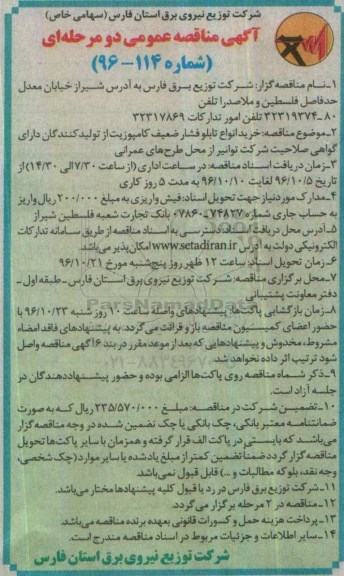 شرکت توزیع نیروی برق استان فارس (سهامی خاص)
آگهی مناقصه عمومی دو مرحله‌ای
(شماره ۱۱۴-۹۶)
۱-نام مناقصه گزار: شرکت توزیع برق فارس به آدرس شیراز خیابان معدل
حدفاصل فلسطین و ملاصدرا تلفن
۸۰-۳۲۳۱۹۳۷۴ تلفن امور تدارکات ۳۲۳۱۷۸۶۹
۲-موضوع مناقصه: خرید انواع تابلو فشار ضعیف کامپوزیت از تولید کنندگان دارای
گواهی صلاحیت شرکت توانیر از محل طرح‌های عمرانی
۳-زمان دریافت اسناد مناقصه: در ساعت اداری (از ساعت ۷/۳۰ الی ۱۴/۳۰) از
تاریخ ۹۶/۱۰/۵ لغایت ۹۶/۱۰/۱۰ به مدت ۵ روز کاری
۴-مدارک مورد نیاز جهت تحویل اسناد: فیش واریزی به مبلغ ۲۰۰/۰۰۰ ریال واریز
به حساب جاری شماره ۷۴۸۲۷-۰۷۸۶۰ بانک تجارت شعبه فلسطین شیراز
۵-آدرس محل دریافت اسناد: دسترسی به اسناد مناقصه از طریق سامانه تدارکات
الکترونیکی دولت به آدرس www.setadiran.ir امکان پذیر می‌باشد.
۶-زمان تحویل اسناد: ساعت ۱۲ ظهر روز پنج‌شنبه مورخ ۹۶/۱۰/۲۱
۷-محل برگزاری مناقصه: شرکت توزیع نیروی برق استان فارس ـ طبقه اول ـ
دفتر معاونت پشتیبانی
۸-زمان بازگشایی پاکت‌ها: پیشنهادهای واصله ساعت ۱۰ روز شنبه ۹۶/۱۰/۲۳ با
حضور اعضای کمیسیون مناقصه باز و قرائت می‌گردد. به پیشنهادهای فاقد امضاء
مشروط، مخدوش و پیشنهادهایی که بعد از موعد مقرر در بند ۶ آگهی مناقصه واصل
شود ترتیب اثر داده نخواهد شد.
۹-ذکر شماره مناقصه روی پاکت‌ها الزامی بوده و حضور پیشنهاددهندگان در
جلسه آزاد است.
۱۰-تضمین شرکت در مناقصه: مبلغ ۲۳۵/۵۷۰/۰۰۰ ریال که به صورت
ضمانتنامه معتبر بانکی، چک بانکی یا چک تضمین شده در وجه مناقصه گزار
می‌باشد که بایستی در پاکت الف قرار گرفته و همزمان با سایر پاکت‌ها تحویل
مناقصه گزار گردد ضمناً تضمین کمتر از مبلغ یاد شده یا سایر موارد (چک شخصی،
وجه نقد، بلوکه مطالبات و ...) قابل قبول نمی‌باشد.
۱۱-شرکت توزیع برق فارس در رد یا قبول کلیه پیشنهادها مختار می‌باشد.
۱۲-مناقصه در ۲ مرحله برگزار می‌گردد.
۱۳-پرداخت هزینه حمل و کسورات قانونی بعهده برنده مناقصه می‌باشد.
۱۴-سایر اطلاعات و جزئیات مربوط در اسناد مناقصه مندرج است.
شرکت توزیع نیروی برق استان فارس